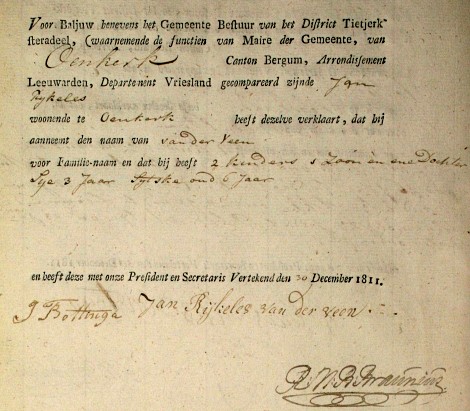 Voor Baljuw benevens het Gemeente Bestuur van het District Tietjerk-
steradeel, (waarnemende de functien van Maire der Gemeente, van
Oenkerk Canton Bergum, Arrondissement
Leeuwarden, Departemint Vriesland gecompareerd zijnde Jan
Rijkeles
woonende te Oenkerk heeft dezelve verklaart, dat hij
aanneemt den naam van van der Veen
voor Familie-naam en dat hij heeft 2 kinders 1 Zoon en ene Dochter
Sije 3 Jaar Sytske oud 6 Jaar
en heeft deze met onze President en Secretaris Vertekend den 30 December 1811.
Jan Rijkeles van der veen